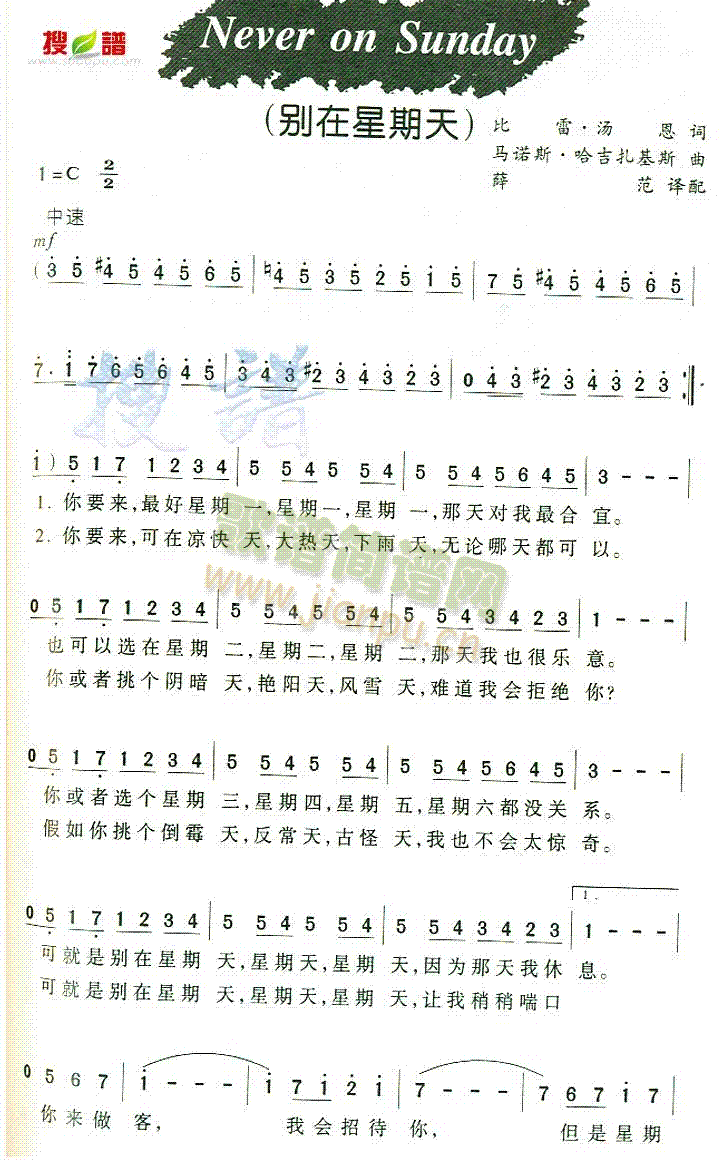 搜谱
www.socopu.com
Never on Sunday
(别在星期天)
比 雷·汤 恩 词
马诺斯·哈吉扎基斯 曲
薛 范 译配
1=C 2/2
中速
mf
(3 5 #4 5 4 5 6 5 | ♮4 5 3 5 2 5 1 5 | 7 5 #4 5 4 5 6 5 |
7· 1 7 6 5 6 4 5 | 3 4 3 #2 3 4 3 2 3 | 0 4 3 #2 3 4 3 2 3 :||
i) 5 1 7 1 2 3 4 | 5 5 4 5 5 4 | 5 5 4 5 6 4 5 | 3 - - - |
1. 你要来,最好星期 一,星期一,星期 一,那天对我最合 宜。
2. 你要来,可在凉快 天,大热天,下雨 天,无论哪天都可 以。
0 5 1 7 1 2 3 4 | 5 5 4 5 5 4 | 5 5 4 3 4 2 3 | 1 - - - |
也可以选在星期 二,星期二,星期 二,那天我也很乐 意。
你或者挑个阴暗 天,艳阳天,风雪 天,难道我会拒绝 你?
0 5 1 7 1 2 3 4 | 5 5 4 5 5 4 | 5 5 4 5 6 4 5 | 3 - - - |
你或者选个星期 三,星期四,星期 五,星期六都没关 系。
假如你挑个倒霉 天,反常天,古怪 天,我也不会太惊 奇。
1.
0 5 1 7 1 2 3 4 | 5 5 4 5 5 4 | 5 5 4 3 4 2 3 | 1 - - - |
可就是别在星期 天,星期天,星期 天,因为那天我休 息。
可就是别在星期 天,星期天,星期 天,让我稍稍喘口
0 5 6 7 | i - - - | i 7 i 2 i | 7 - - - | 7 6 7 i 7
你来做 客, 我会招待 你, 但是星期
搜谱
歌谱简谱网
www.jianpu.cn